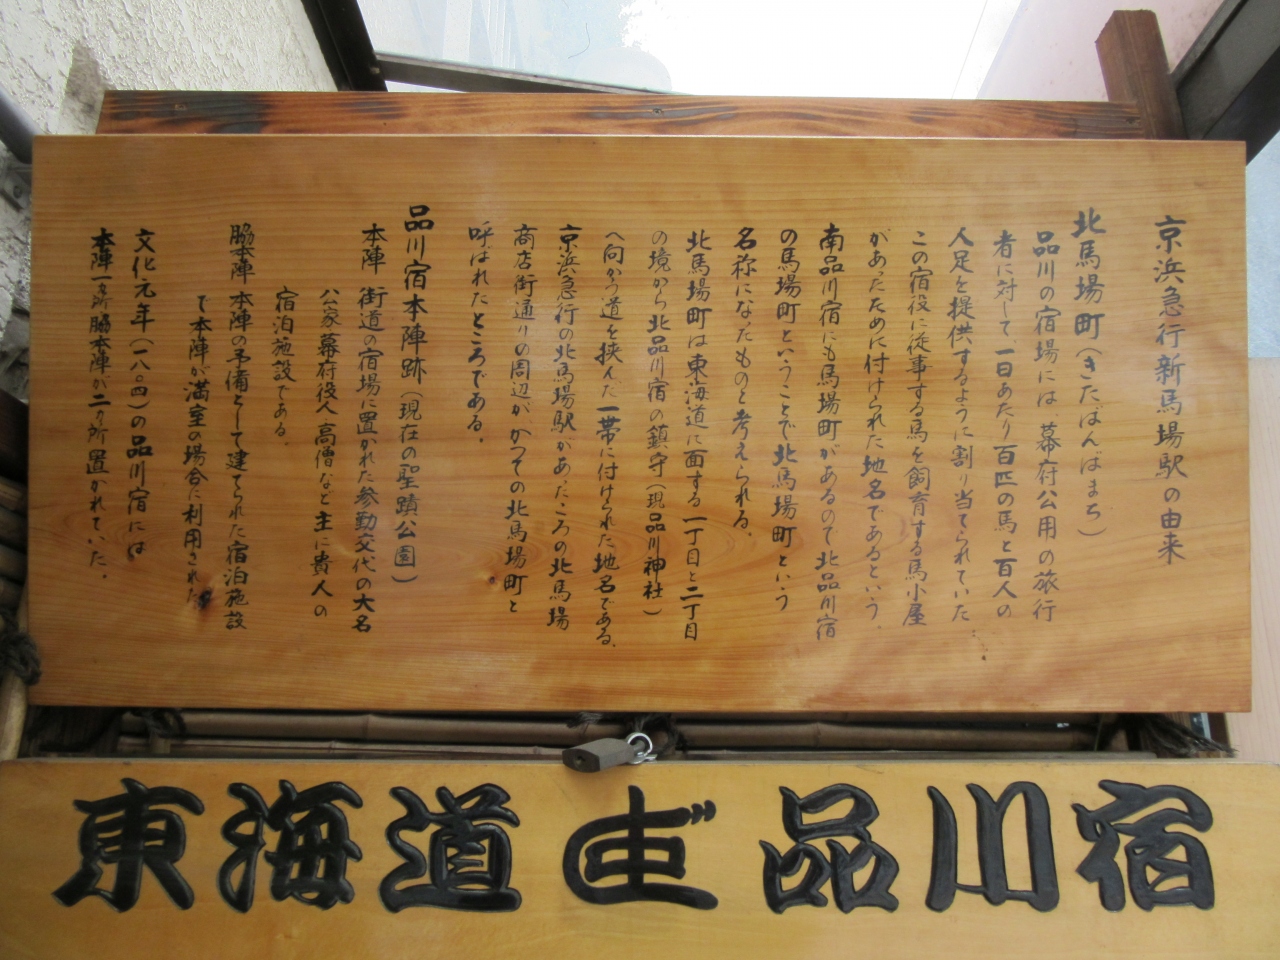 京浜急行新馬場駅の由来
北馬場町(きたばんばまち)
品川の宿場には、幕府公用の旅行
者に対して、一日あたり百匹の馬と百人の
人足を提供するように割り当てられていた
この宿役に従事する馬を飼育する馬小屋
があったために付けられた地名であるという。
南品川宿にも馬場町があるので北品川宿
の馬場町ということで北馬場町という
名称になったものと考えられる。
北馬場町は東海道に面する一丁目と二丁目
の境から北品川宿の鎮守(現品川神社)
へ向かう道を挟んだ一帯に付けられた地名である、
京浜急行の北馬場駅があったころの北馬場
商店街通りの周辺がかつての北馬場町と
呼ばれたところである。
品川宿本陣跡(現在の聖蹟公園)
本陣 街道の宿場に置かれた参勤交代の大名
公家幕府役人高僧など主に貴人の
宿泊施設である。
脇本陣 本陣の予備として建てられた宿泊施設
で本陣が満室の場合に利用された
文化元年(一八〇四)の品川宿には
本陣一ヶ所脇本陣が二ヶ所置かれていた。
東海道 品川宿